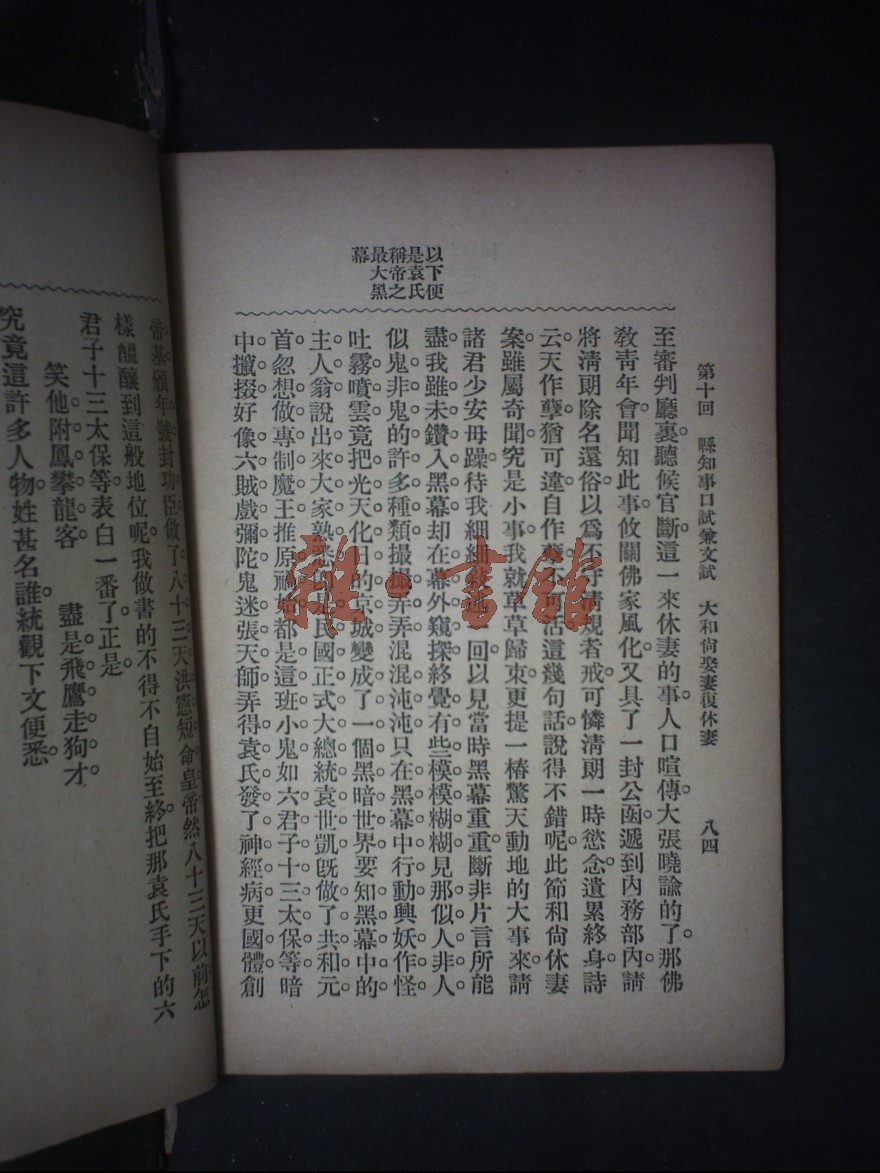 第十回　縣知事口試兼文試　大和尙娶妻復休妻　　八四
至審判廳裏聽候官斷。這一來休妻的事。人口喧傳。大張曉諭的了。那佛
敎靑年會聞知此事。攸關佛家風化。又具了一封公函。遞到內務部內。請
將淸朗除名還俗。以爲不守淸規者戒。可憐淸朗一時慾念。遺累終身。詩
云。天作孽猶可違。自作孽不可活。這幾句話說得不錯呢。此節和尙休妻
案。雖屬奇聞。究是小事。我就草草歸束。更提一樁驚天動地的大事來。請
諸君少安毋躁。待我細細敍述一回。以見當時黑幕重重。斷非片言所能
盡。我雖未鑽入黑幕。却在幕外窺探。終覺有些模模糊糊。見那似人非人。
似鬼非鬼的許多種類。撮撮弄弄。混混沌沌。只在黑幕中行動。興妖作怪。
吐霧噴雲。竟把光天化日的京城。變成了一個黑暗世界。要知黑幕中的
主人翁。說出來大家熟悉。卽是民國正式大總統袁世凱。旣做了共和元
首。忽想做專制魔王。推原禍始。都是這班小鬼。如六君子十三太保等。暗
中攛掇。好像六賊戲彌陀。鬼迷張天師。弄得袁氏發了神經病。更國體。創
以下便
是袁氏
稱帝之
最大黑
幕
帝基。頒年號。封功臣。做了八十三天洪憲短命皇帝。然八十三天以前。怎
樣醞釀到這般地位呢。我做書的不得不自始至終。把那袁氏手下的六
君子十三太保等。表白一番了。正是
笑他附鳳攀龍客　　盡是飛鷹走狗才
究竟這許多人物姓甚名誰。統觀下文便悉
雜·書館